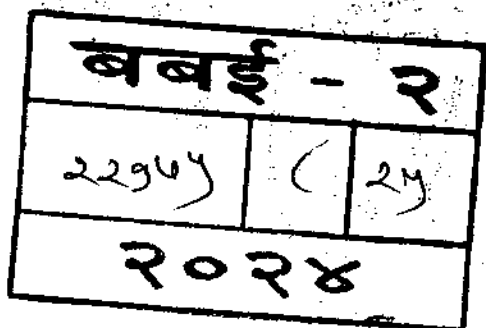 बबई - २
२२१७५ ८ २५
२०२४